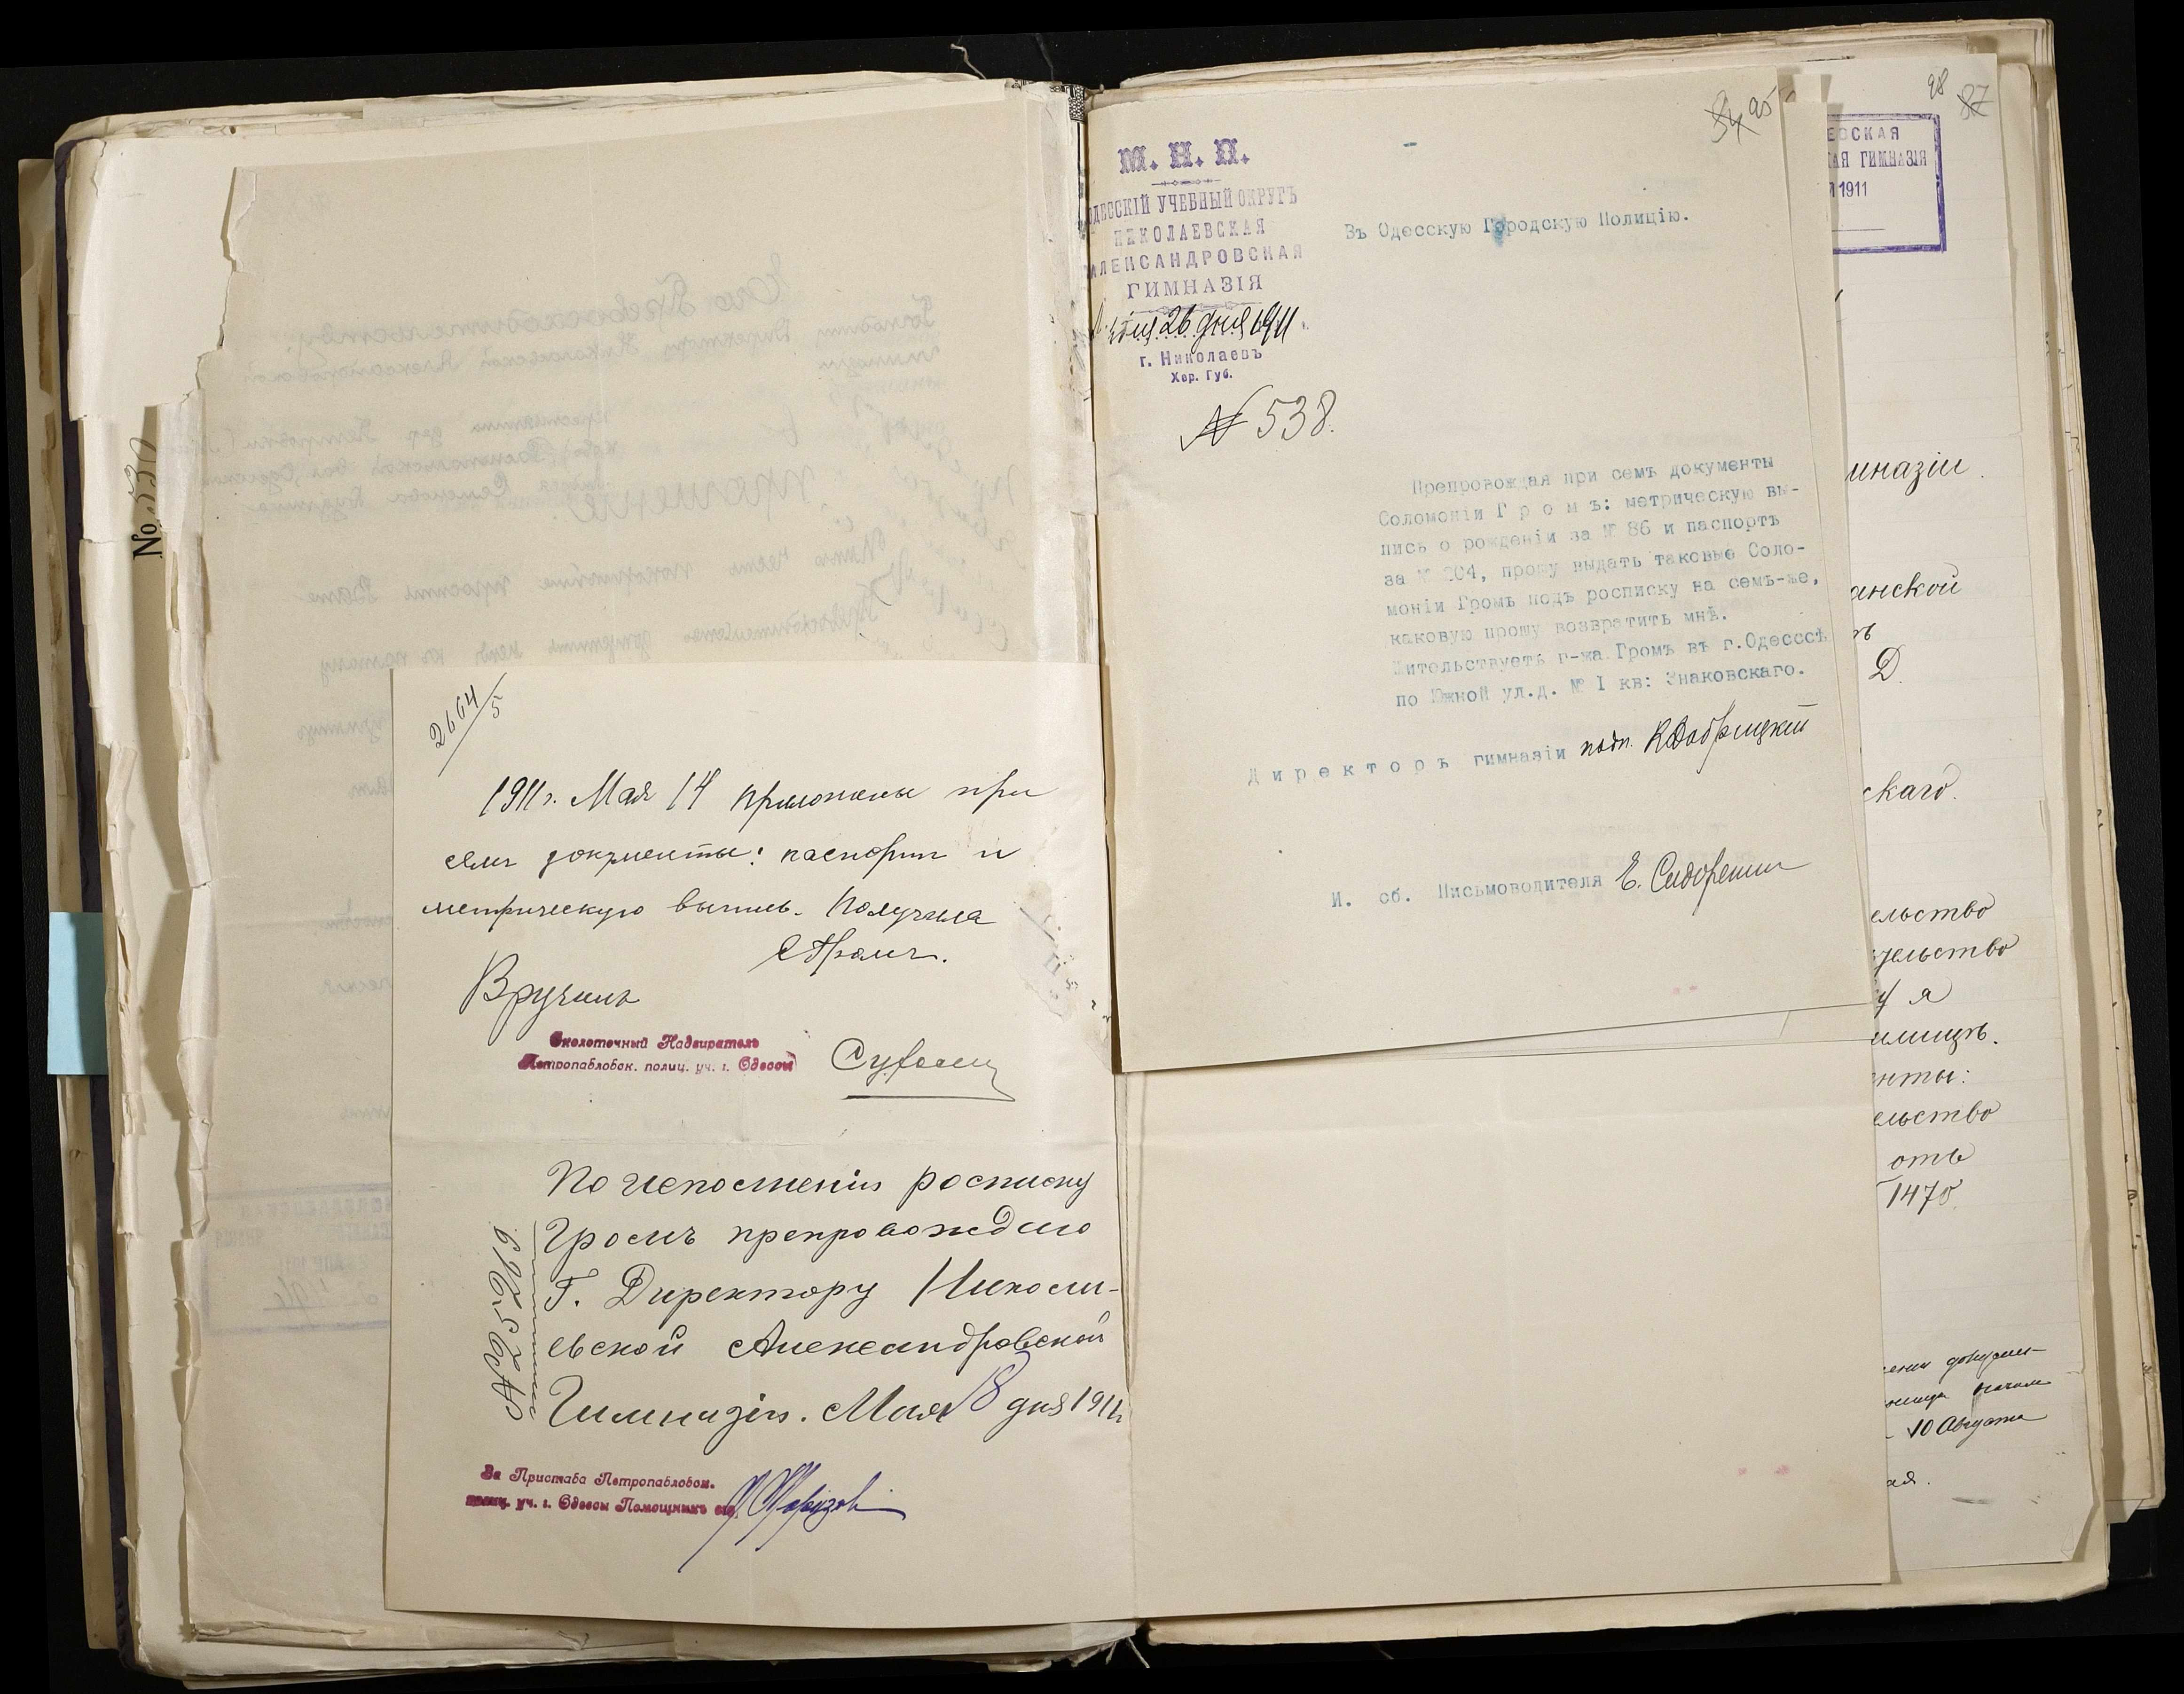 № 530
2664/5
1911 г. Мая 14 приложены при
семъ документы: паспортъ и
метрическую выпись. Получила
С Громъ.
Вручилъ
Околоточный Надзиратель
Петропавловск. полиц. уч. г. Одессы
По исполненіи росписку
Громъ препровождаю
Г. Директору Никола-
евской Александровской
Гимназіи. Мая 18 дня 1911
№ 25269
За Пристава Петропавловск.
полиц. уч. г. Одессы Помощникъ его
84 95
М. Н. П.
ОДЕССКІЙ УЧЕБНЫЙ ОКРУГЪ
НИКОЛАЕВСКАЯ
АЛЕКСАНДРОВСКАЯ
ГИМНАЗІЯ
26 дня 1911
г. Николаевъ
Хер. Губ.
№ 538.
Въ Одесскую Городскую Полицію.
Препровождая при семъ документы
Соломоніи Г р о м ъ: метрическую вы-
пись о рожденіи за № 86 и паспортъ
за № 204, прошу выдать таковые Соло-
моніи Громъ подъ росписку на семъ-же,
каковую прошу возвратить мнѣ.
Жительствуетъ г-жа Громъ въ г.Одессѣ
по Южной ул.д. № I кв: Знаковскаго.
Директоръ гимназіи подп. К Добрицкій
И. об. Письмоводителя Е. Сидоренко
98 87
ЕССКАЯ
АЯ ГИМНАЗІЯ
1911
мназіи
анской
Д.
скаго.
ельство
тельство
у я
илищѣ.
енты:
ельство
отъ
1470
10 Августа
ая.